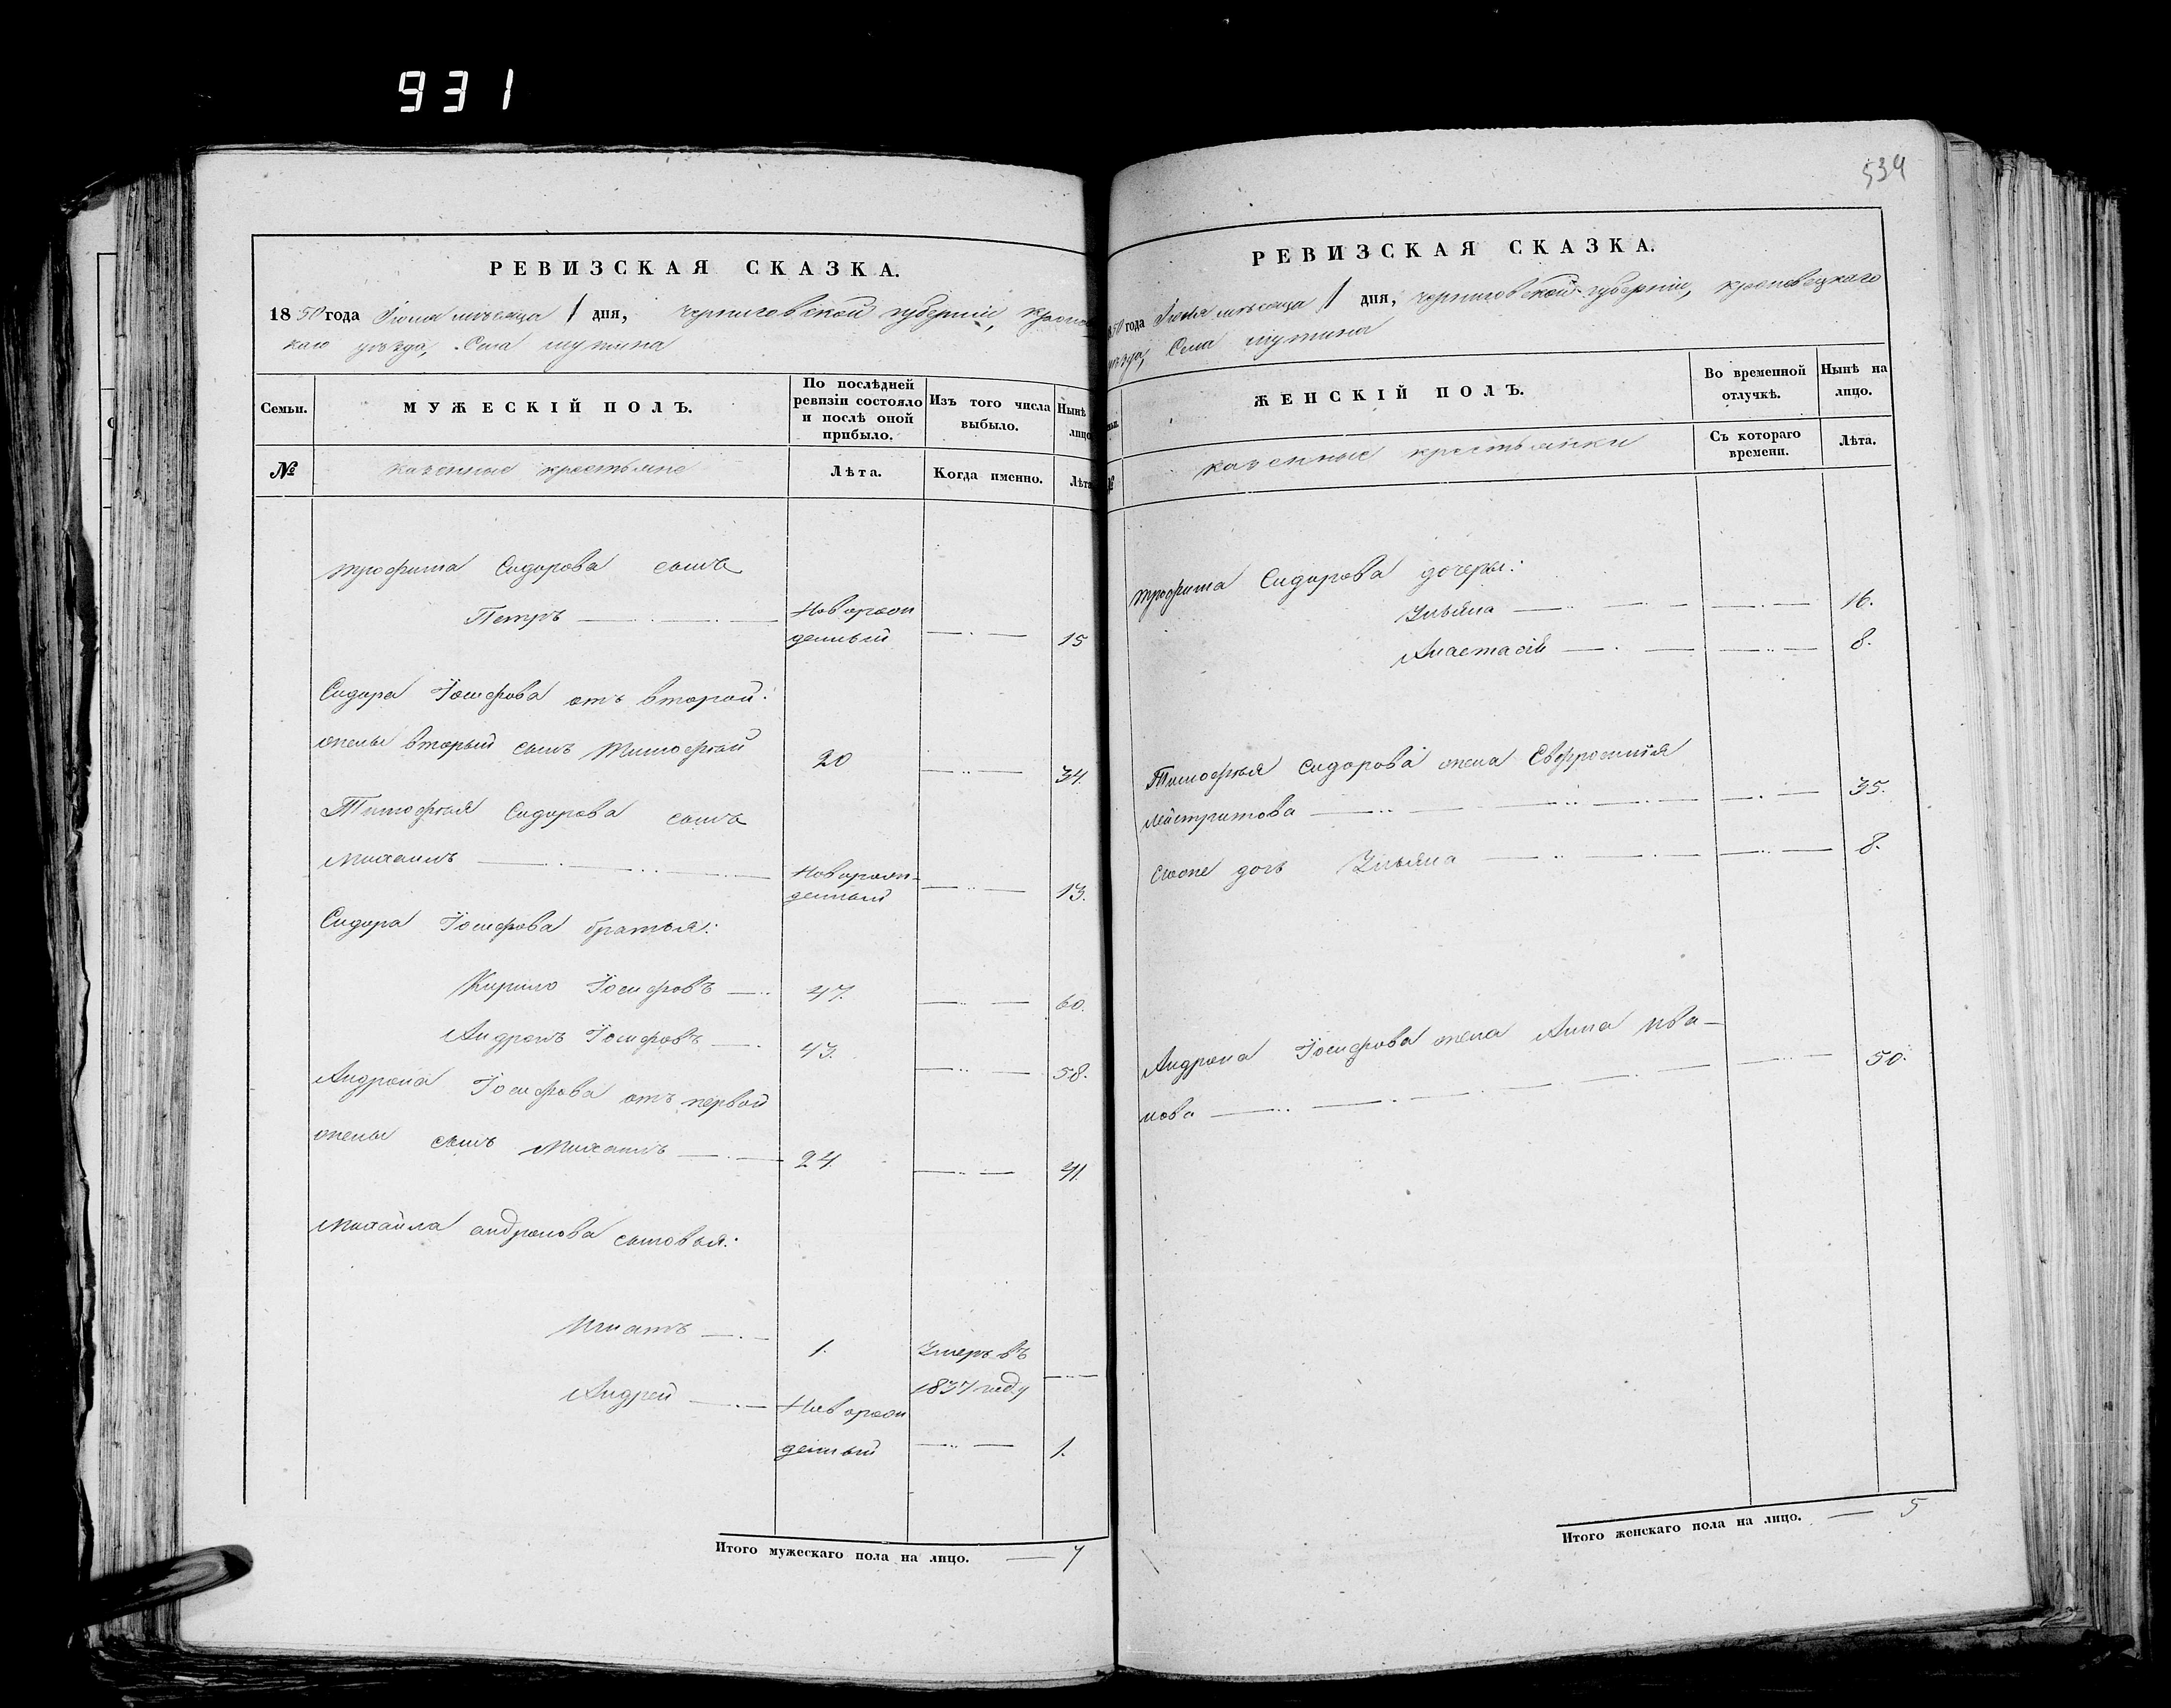 931
534
РЕВИЗСКАЯ СКАЗКА.
1850 года Іюня мѣсяца 1 дня, Черниговской губерніи,
каго уѣзда, Села
Семьи.
МУЖЕСКІЙ ПОЛЪ.
По послѣдней ревизіи состояло и послѣ оной прибыло.
Изъ того числа выбыло.
Нынѣ лицо
№
казенные крестьяне
Лѣта.
Когда именно.
Лѣта
Трофима Сидорова сынъ
Петръ
Новорож
денный
15
Сидора Іосифова отъ второй
жены вторый сынъ Тимофѣй
20
34.
Тимофѣя Сидорова сынъ
Михаилъ
Новорож-
денный
13.
Сидора Іосифова братья:
Кирило Іосифовъ
47.
60.
Андронъ Іосифовъ
43.
58.
Андрона Іосифова отъ первой
жены сынъ Михаилъ
24.
41.
Михайла Андронова сыновья:
Игнатъ
1.
Умеръ въ
1837 году
Андрей
Новорож
денный
1.
Итого мужескаго пола на лицо. 7
РЕВИЗСКАЯ СКАЗКА.
1850 года Іюня мѣсяца 1 дня, Черниговской губерніи, Кролевецкаго
уѣзда, Села
ЖЕНСКІЙ ПОЛЪ.
Во временной отлучкѣ.
Нынѣ на лицо.
№
казенные крестьянки
Съ котораго времени.
Лѣта.
Трофима Сидорова дочери:
Ульяна
16.
Анастасія
8.
Тимофѣя Сидорова жена Евфросинія
35.
дочь Ульяна
8.
Андрона Іосифова жена Анна Ива-
нова
50.
Итого женскаго пола на лицо. 5